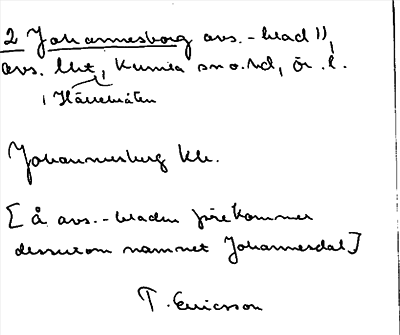 2 Johannesborg avs.-blad 1),
avs. lht, Kumla sn o. hd, Ör. l.
i Hällebråten
Johannesberg Kh.
[å avs.-bladen förekommer
dessutom namnet Johannesdal]
T. Ericsson